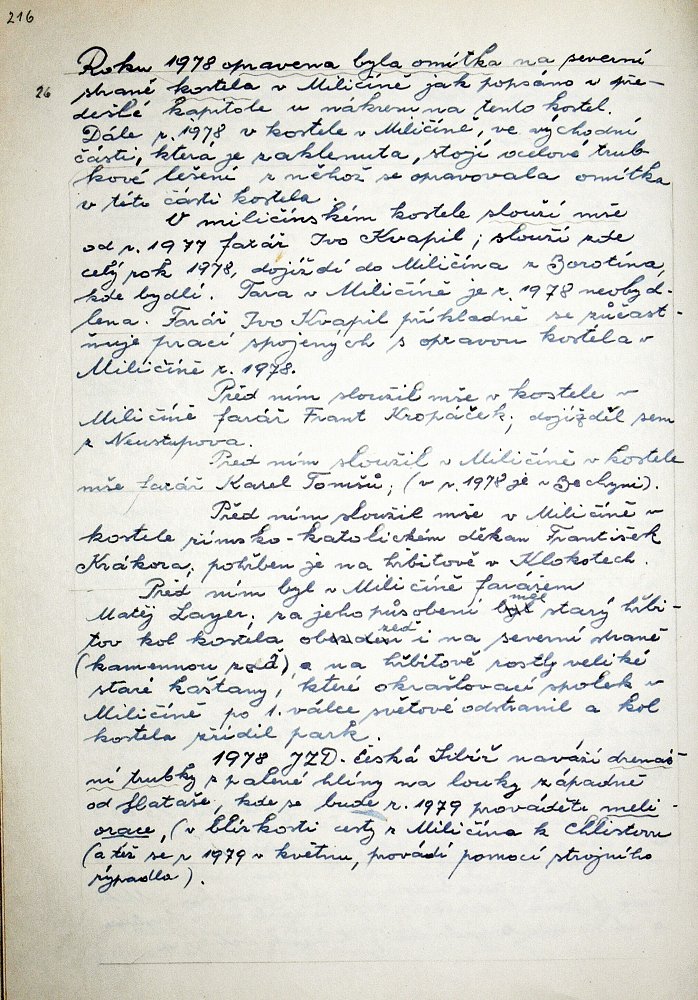 216
Roku 1978 opravena byla omítka na severní
26
straně kostela v Miličíně jak popsáno v pře-
dešlé kapitole u nákresu na tento kostel.
Dále r. 1978 v kostele v Miličíně, ve východní
části, která je zaklenuta, stojí ocelové trub-
kové lešení z něhož se opravovala omítka
v této části kostela.
V miličínském kostele slouží mše
od r. 1977 farář Ivo Kvapil; slouží zde
celý rok 1978, dojíždí do Miličína z Borotína,
kde bydlí. Fara v Miličíně je r. 1978 neobyd-
lena. Farář Ivo Kvapil příkladně se zůčast-
ňuje prací spojených s opravou kostela v
Miličíně r. 1978.
Před ním sloužil mše v kostele v
Miličíně farář Frant Kropáček; dojížděl sem
z Neustupova.
Před ním sloužil v Miličíně v kostele
mše farář Karel Tomšů; (v r. 1978 je v Bechyni).
Před ním sloužil mše v Miličíně v
kostele římsko-katolickém děkan František
Krákora; pohřben je na hřbitově v Klokotech.
Před ním byl v Miličíně farářem
Matěj Layer; za jeho působení měl starý hřbi-
tov kol kostela zeď i na severní straně
(kamennou zeď), a na hřbitově rostly veliké
staré kaštany, které okrašlovací spolek v
Miličíně po 1. válce světové odstranil a kol
kostela zřídil park.
1978 JZD. Česká Sibiř naváží drenáž-
ní trubky z pálené hlíny na louky západně
od Hataše, kde se bude r. 1979 prováděti meli-
orace, (v blízkosti cesty z Miličína k Chlistovu
(a též se r 1979 v květnu, provádí pomocí strojního
rýpadla).